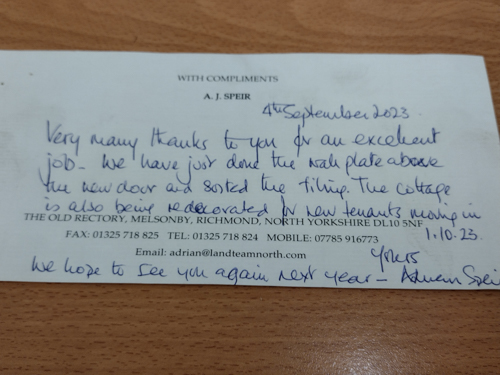 WITH COMPLIMENTS
A. J. SPEIR
4th September 2023.
Very many thanks to you for an excellent
job - We have just done the wall plate above
the new door and sorted the tiling. The cottage
is also being redecorated for new tenants moving in
THE OLD RECTORY, MELSONBY, RICHMOND, NORTH YORKSHIRE DL10 5NF
1.10.23.
FAX: 01325 718 825 TEL: 01325 718 824 MOBILE: 07785 916773
Yours
Email: adrian@landteamnorth.com
We hope to see you again next year - Adrian Speir